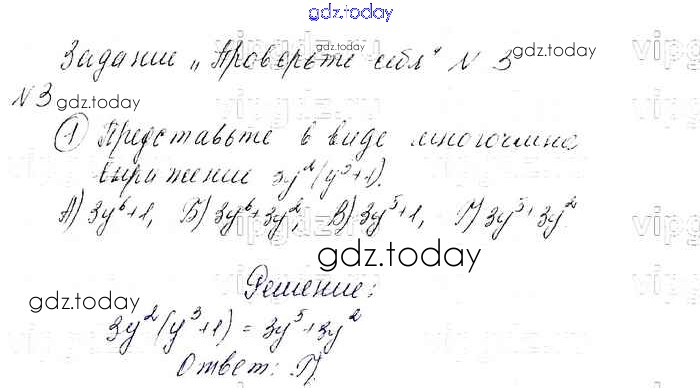 gdz.today
Задание „Проверьте себя" № 3
gdz.today
gdz.today
№3
gdz.today
1 Представьте в виде многочлена
выражение 3y²(y³+1).
А) 3y⁶+1, Б) 3y⁶+3y², В) 3y⁵+1, Г) 3y⁵+3y²
gdz.today
Решение:
gdz.today
3y²(y³+1) = 3y⁵+3y²
Ответ: Г)